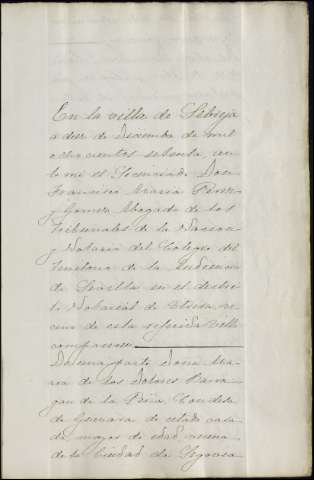 En la villa de Lebrija
a diez de Diciembre de mil
ochocientos setenta, ante
mi el Licenciado Don
Francisco Maria Perez
y Gomez Abogado de los
Tribunales de la Nacion
y Notario del Colegio del
territorio de la Audiencia
de Sevilla en el distri
to Notarial de Utrera, ve
cino de esta referida Villa
comparecen
De una parte Doña Ma
ria de los Dolores Parra
gan de la Peña, Ladron
de Guevara de estado casa
da, mayor de edad, vecina
de la Ciudad de